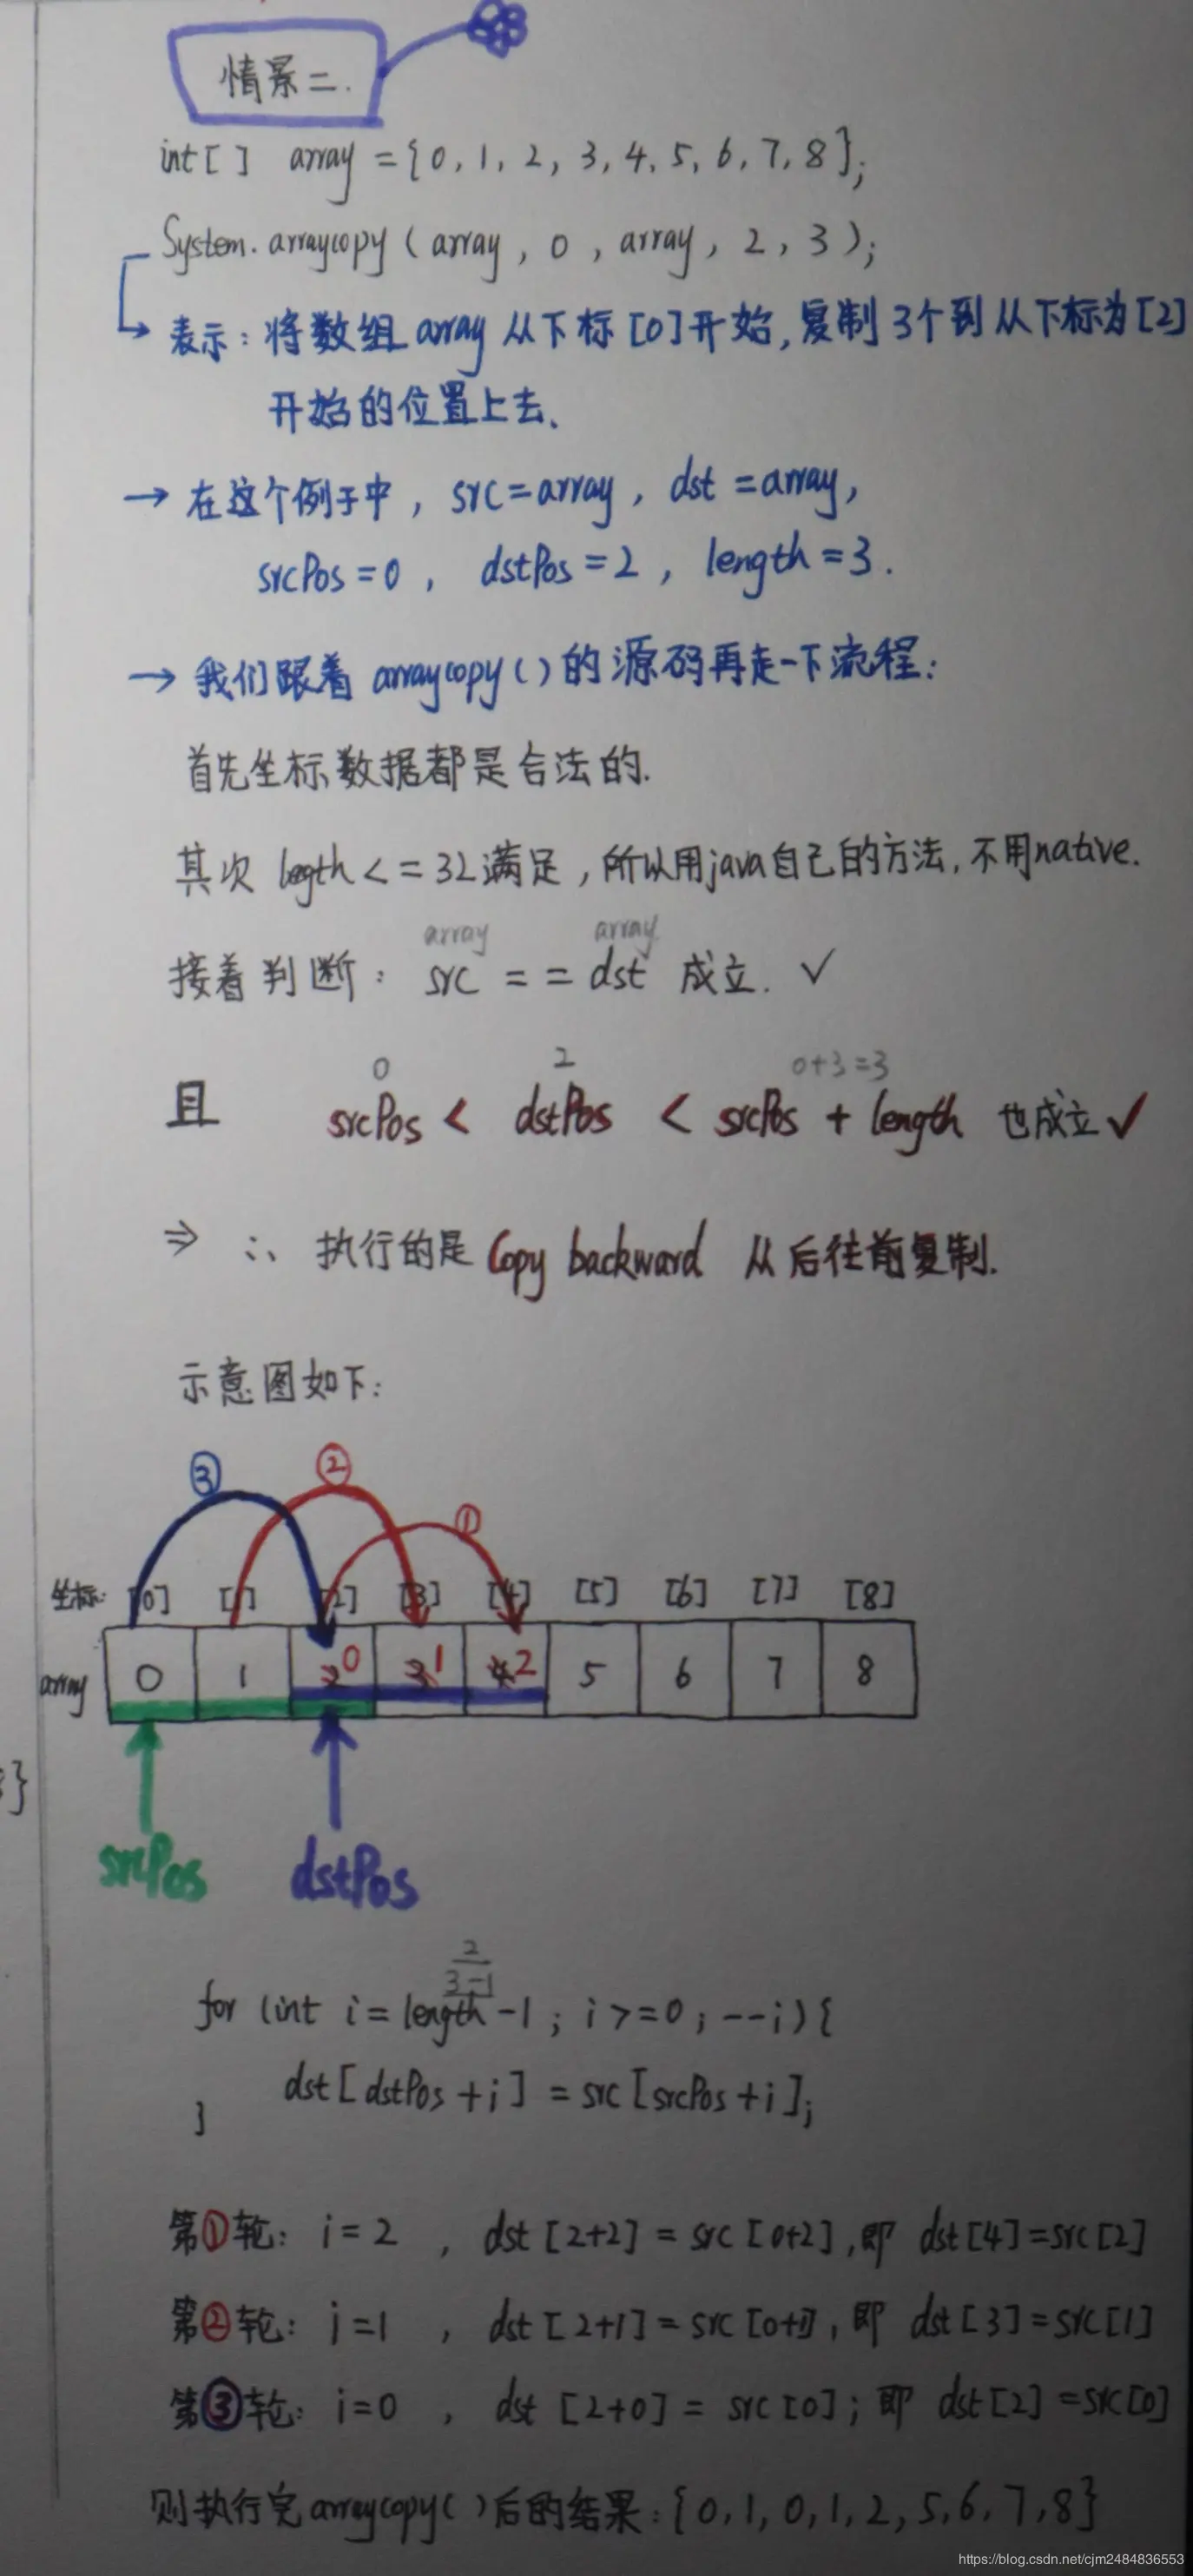 情景二.
int[] array = {0, 1, 2, 3, 4, 5, 6, 7, 8};
System.arraycopy(array, 0, array, 2, 3);
表示: 将数组array从下标[0]开始, 复制3个到从下标为[2]
开始的位置上去、
→ 在这个例子中, src=array, dst=array,
srcPos=0, dstPos=2, length=3.
→ 我们跟着arraycopy()的源码再走一下流程:
首先坐标数据都是合法的.
其次 legth<=32满足, 所以用java自己的方法, 不用native.
array array
接着判断: src == dst 成立. ✓
0 2 0+3=3
且 srcPos < dstPos < srcPos + length 也成立✓
⇒ ∴ 执行的是 Copy backward 从后往前复制.
示意图如下:
③ ② ①
坐标: [0] [1] [2] [3] [4] [5] [6] [7] [8]
array 0 1 2 0 3 1 4 2 5 6 7 8
}
srcPos dstPos
2
3-1
for (int i = length-1; i>=0; --i){
dst[dstPos+i] = src[srcPos+i];
}
第①轮: i=2, dst[2+2] = src[0+2], 即 dst[4]=src[2]
第②轮: i=1, dst[2+1]=src[0+1], 即 dst[3]=src[1]
第③轮: i=0, dst[2+0] = src[0]; 即 dst[2]=src[0]
则执行完arraycopy()后的结果: {0,1,0,1,2,5,6,7,8}
https://blog.csdn.net/cjm2484836553